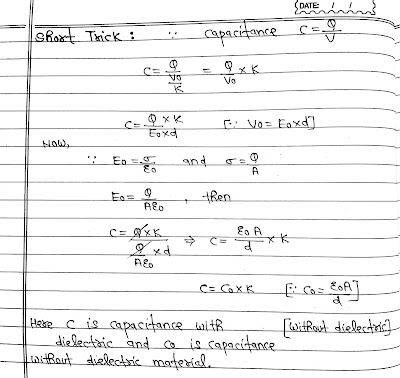 DATE: / /
Short Trick : ∵ capacitance C = Q/V
C = Q/(V0/K) = Q/V0 × K
C = (Q × K)/(E0×d) [∵ V0 = E0×d]
Now,
∵ E0 = σ/ε0 and σ = Q/A
E0 = Q/Aε0 , then
C = (Q×K)/((Q/Aε0) × d) ⇒ C = ε0 A/d × K
C = C0 × K [∵ C0 = ε0A/d]
Here C is capacitance with [without dielectric]
dielectric and C0 is capacitance
without dielectric material.